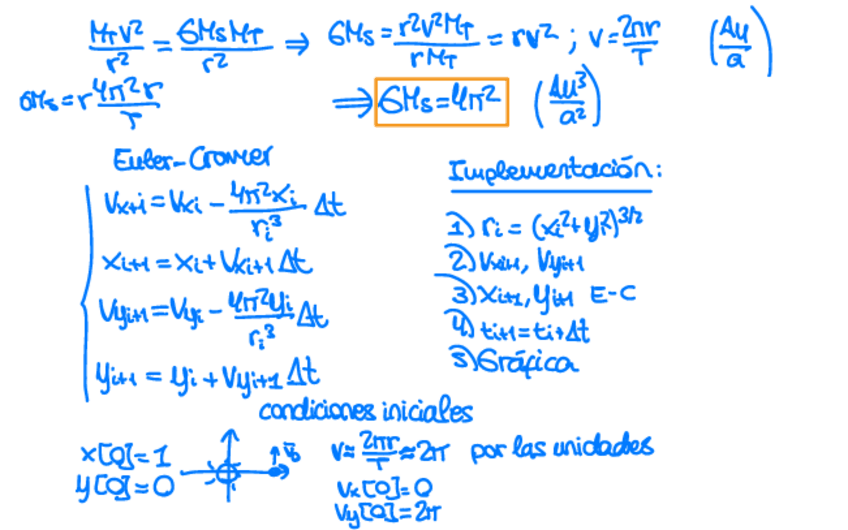 M_T v²/r² = GM_S M_T/r² ⇒ GM_S = r²v²M_T/rM_T = rv² ; v = 2πr/T (Au/a)
GM_S = r 4π²r/T ⇒ GM_S = 4π² (Au³/a²)
Euler-Cromer
Implementación:
V_x+i = V_xi - 4π²x_i/r_i³ Δt
x_i+1 = x_i + V_xi+1 Δt
V_yi+1 = V_yi - 4π²y_i/r_i³ Δt
y_i+1 = y_i + V_yi+1 Δt
1) r_i = (x_i² + y_i²)^3/2
2) V_xi+1, V_yi+1
3) x_i+1, y_i+1 E-C
4) t_i+1 = t_i + Δt
5) Gráfica
condiciones iniciales
x[0]=1
y[0]=0
v̄₀
v ≈ 2πr/T ≈ 2π por las unidades
Vx[0]=0
Vy[0]=2π